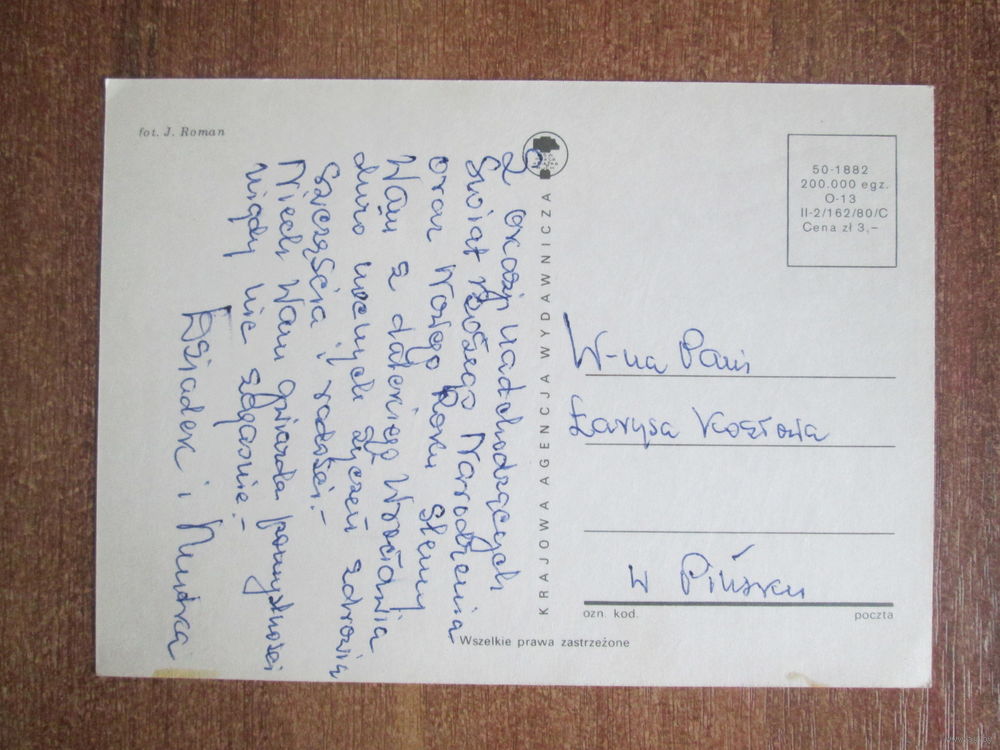 fot. J. Roman
Z okazji nadchodzących
Świąt Bożego Narodzenia
oraz Nowego Roku ślemy
Wam z dalekiego Wrocławia
dużo mocnych życzeń zdrowia
szczęścia i radości.-
Niech Wam gwiazda pomyślności
nigdy nie zgaśnie.-
Dziadek i Niuśka
KRAJOWA AGENCJA WYDAWNICZA
50-1882
200.000 egz.
O-13
II-2/162/80/C
Cena zł 3,–
W-na Pani
Łarysa Kozłowa
w Pińsku
ozn. kod. poczta
Wszelkie prawa zastrzeżone